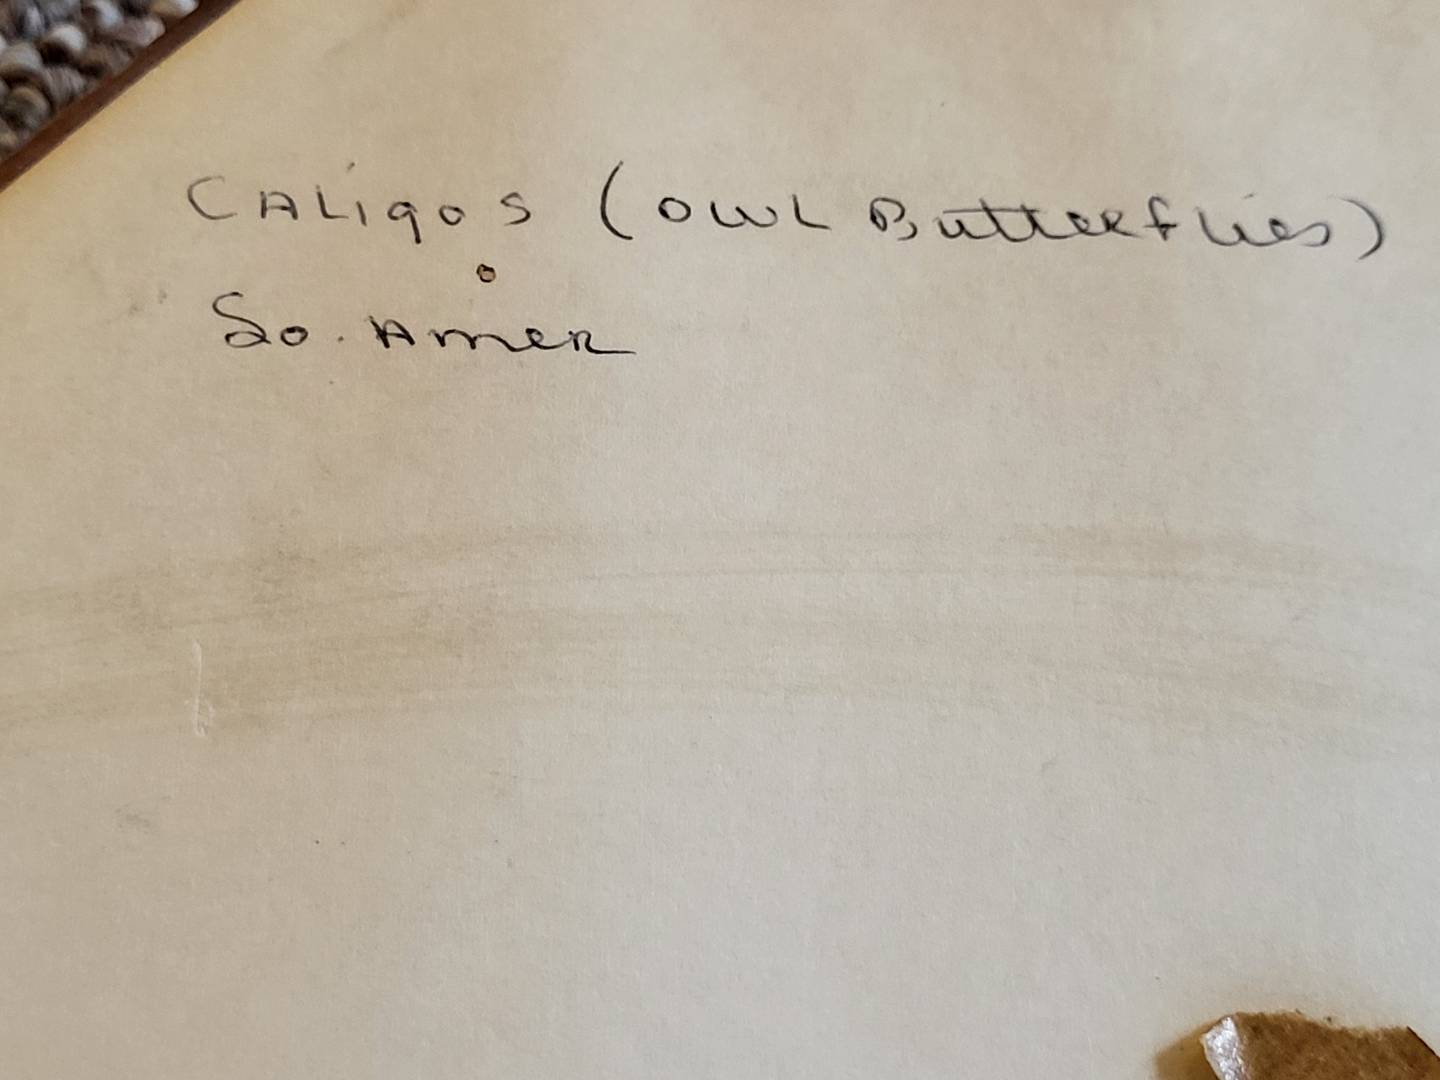 CALigos (OWL Butterflies)
So. Amer